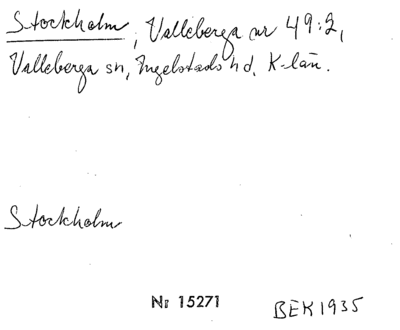 Stockholm, Valleberga nr 49:2,
Valleberga sn, Ingelstads hd, K-län.
Stockholm
Nr 15271
BEK 1935